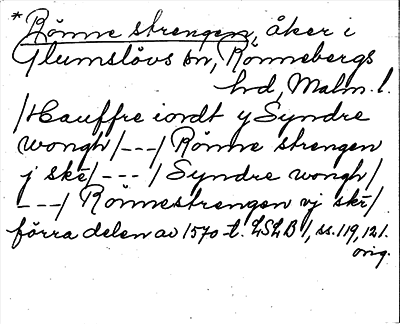 *Rönne strengen, åker i
Glumslövs sn, Rönnebergs
hd, Malm. l.
/Hauffre iordt y Syndre
wongh/---/ Rönne strengen
j ske/---/ Syndre wongh/
---/ Rönnestrengen vj ske/
förra delen av 1570-t. LSLB 1, ss. 119, 121.
orig.